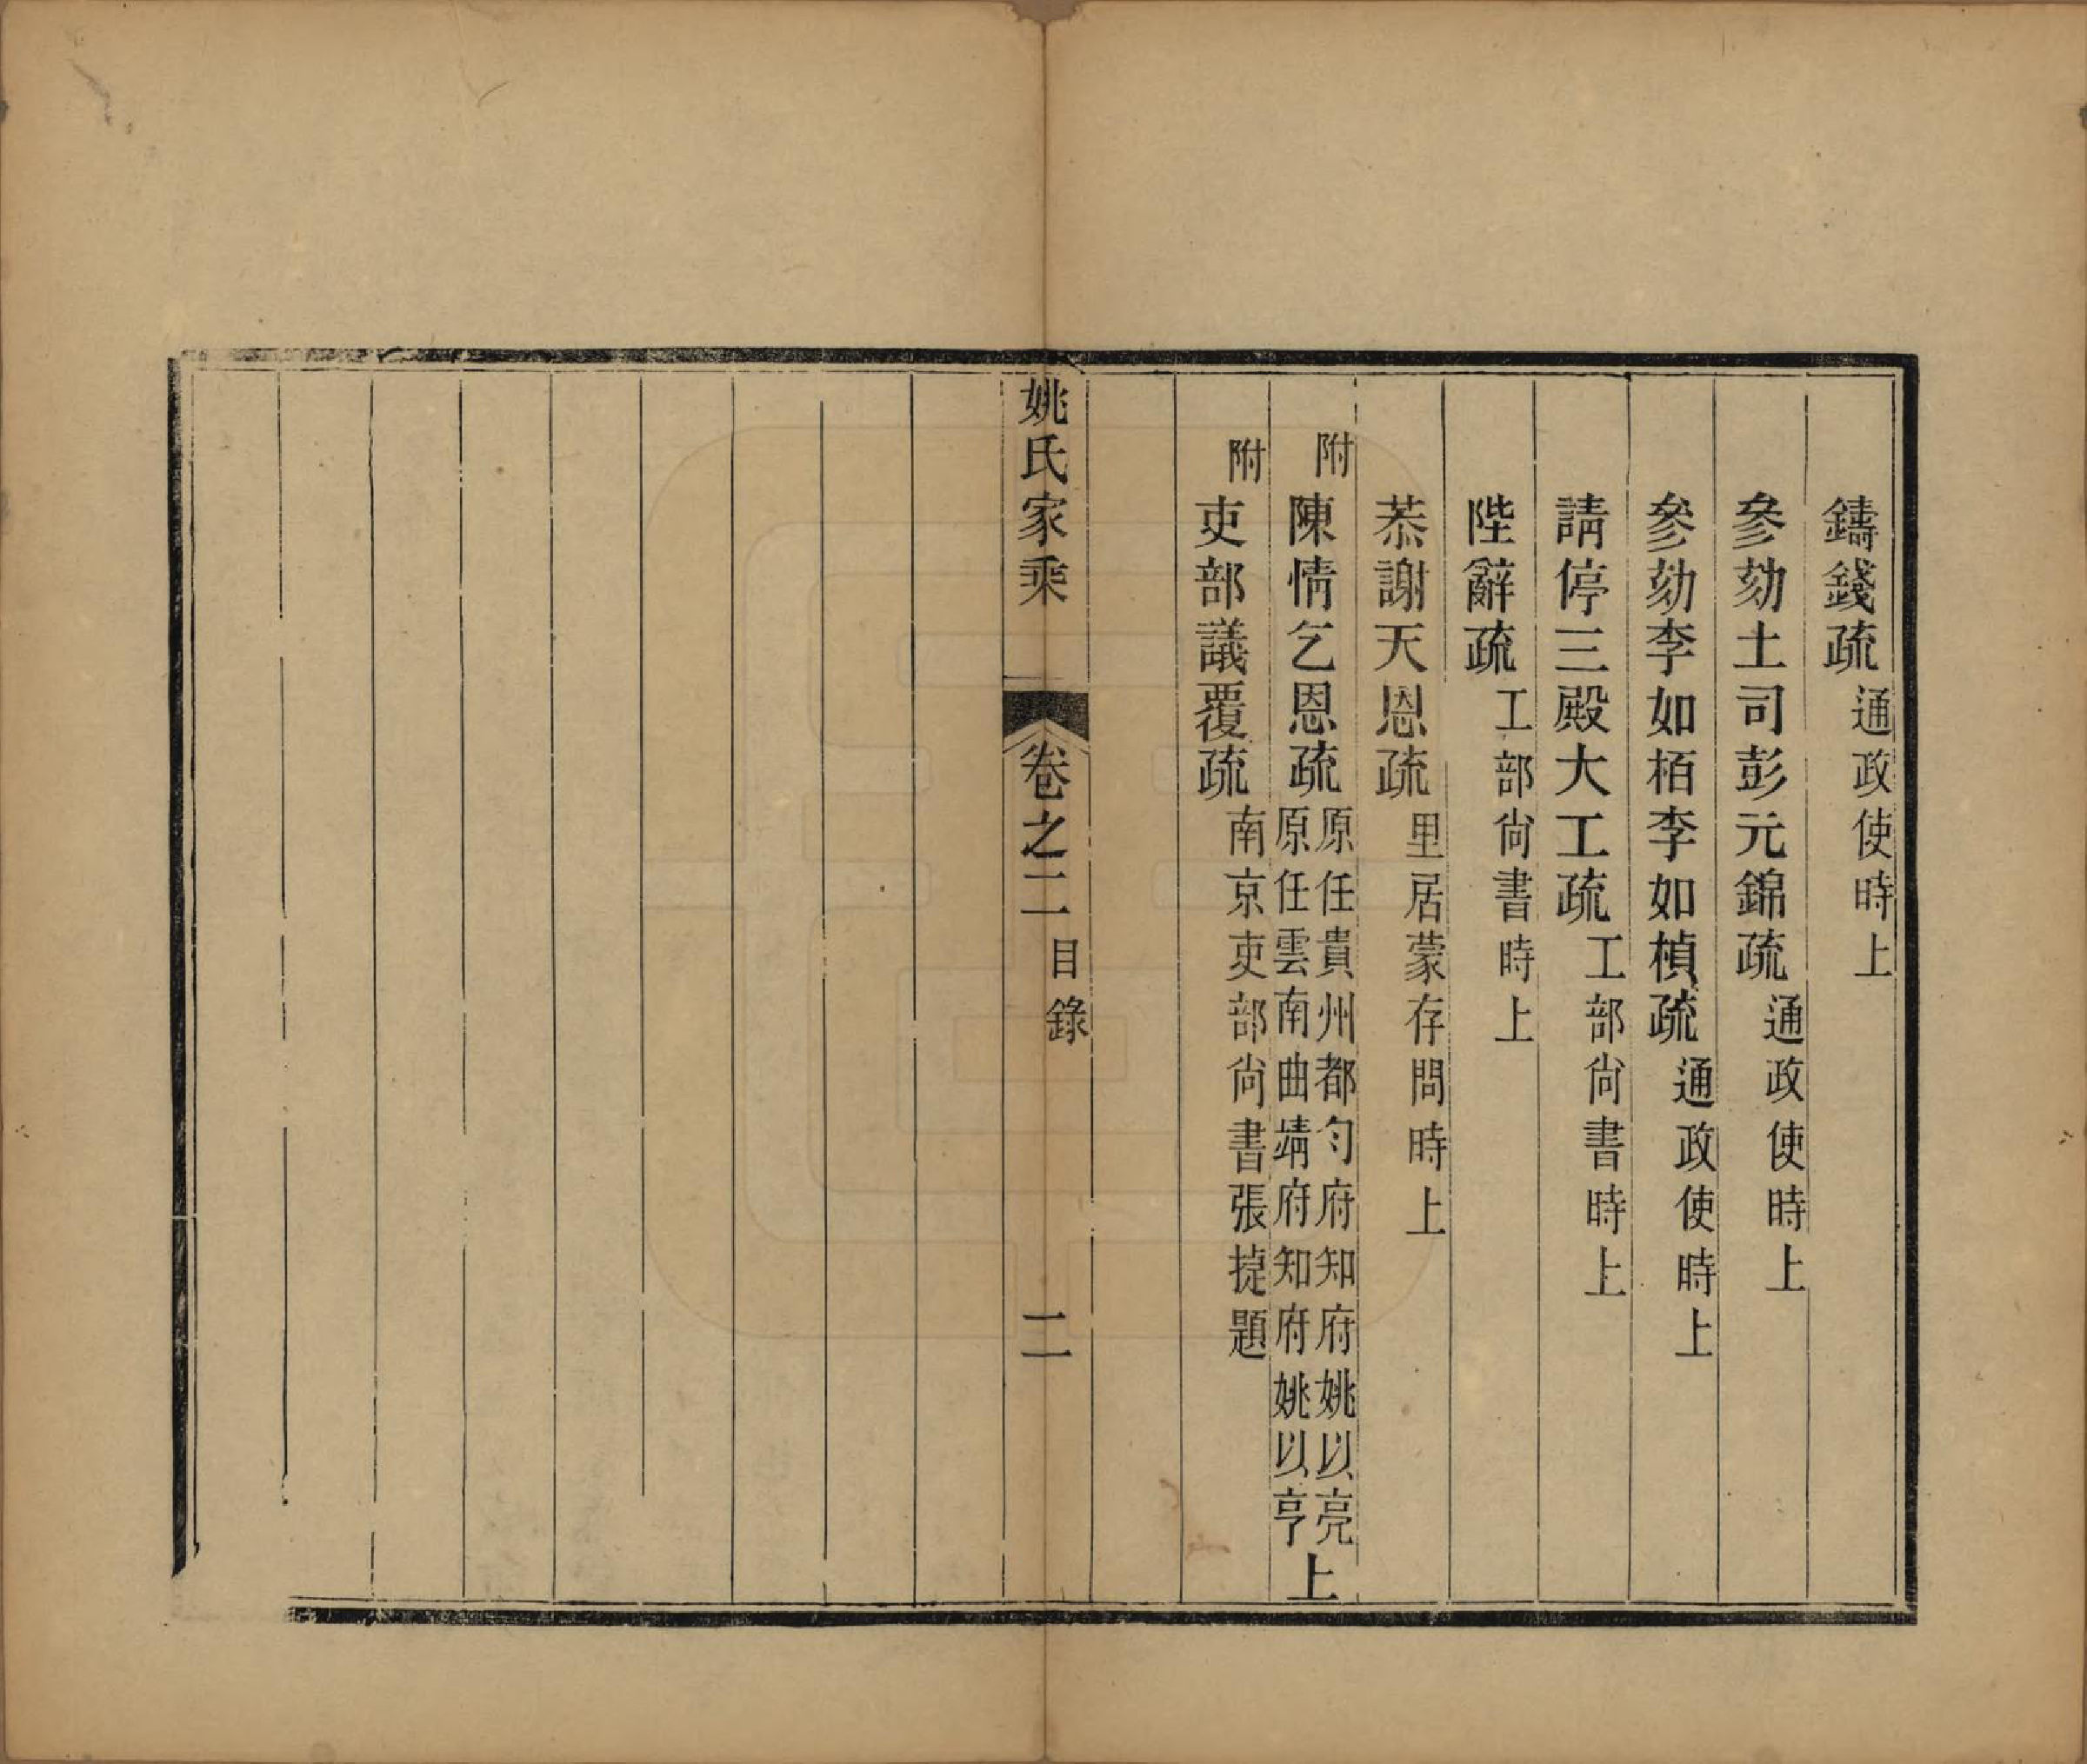 鑄錢疏通政使時上
參劾土司彭元錦疏通政使時上
參劾李如栢李如楨疏通政使時上
請停三殿大工疏工部尙書時上
陛辭疏工部尙書時上
恭謝天恩疏里居蒙存問時上
附陳情乞恩疏原任貴州都勻府知府姚以亮
原任雲南曲靖府知府姚以亨上
附吏部議覆疏南京吏部尙書張㨗題
姚氏家乘 卷之二目錄 二